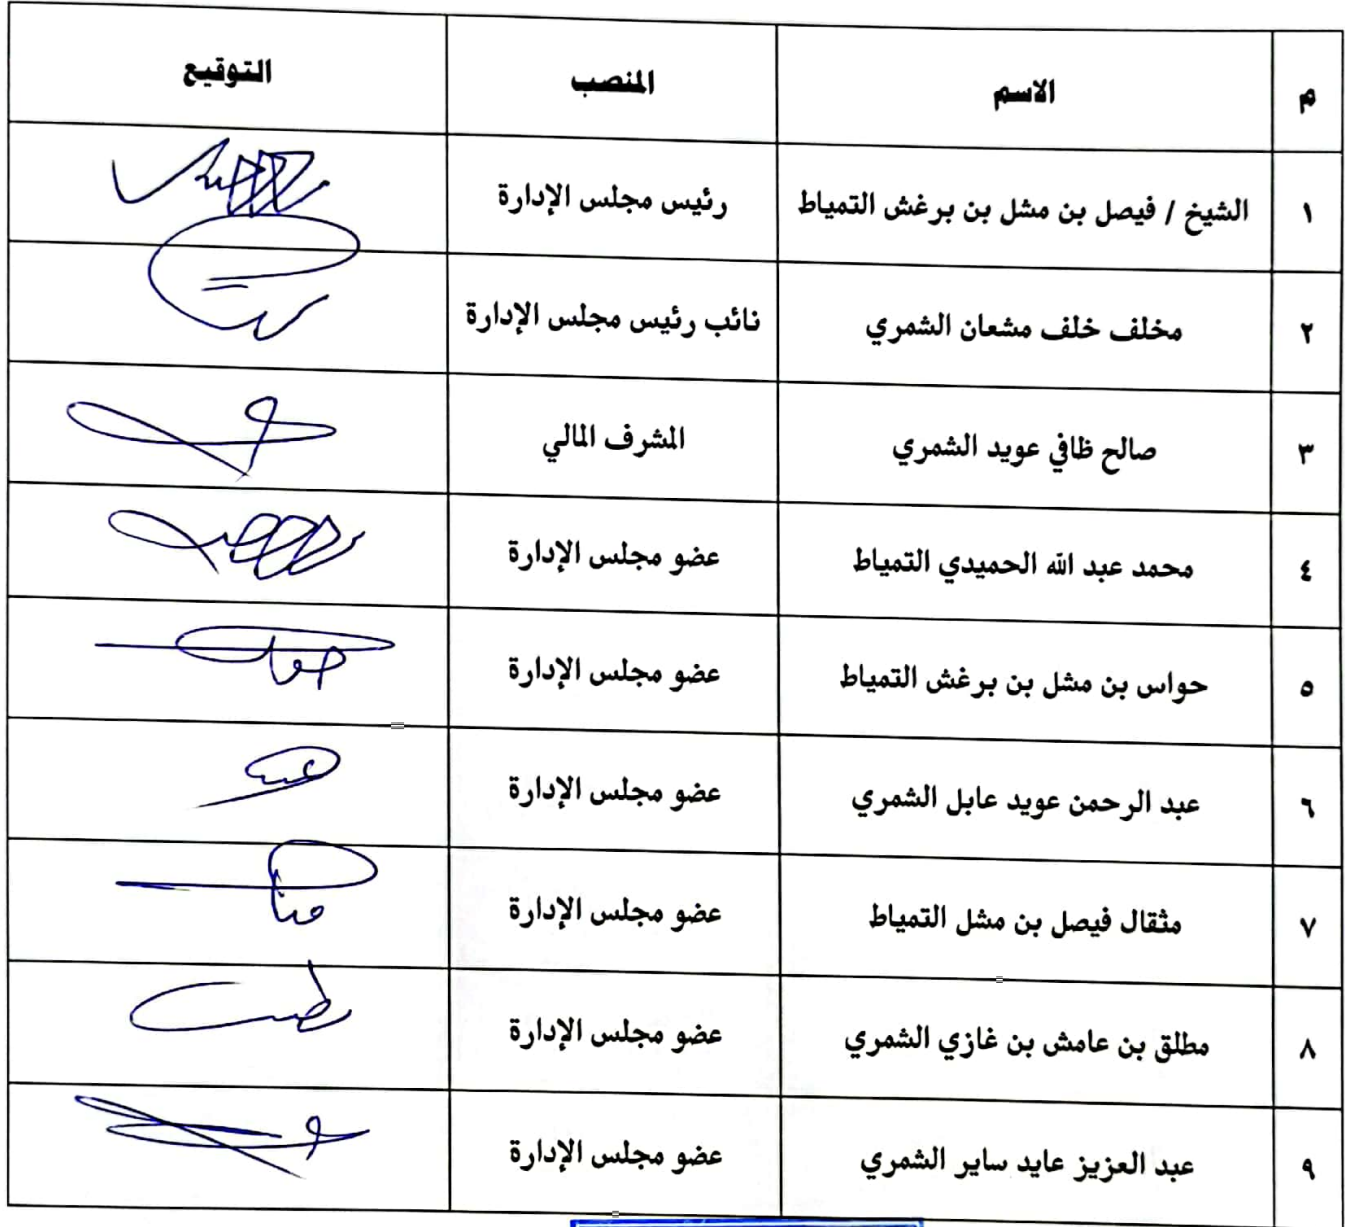 م الاسم المنصب التوقيع
١ الشيخ / فيصل بن مشل بن برغش التمياط رئيس مجلس الإدارة
٢ مخلف خلف مشعان الشمري نائب رئيس مجلس الإدارة
٣ صالح ظافي عويد الشمري المشرف المالي
٤ محمد عبد الله الحميدي التمياط عضو مجلس الإدارة
٥ حواس بن مشل بن برغش التمياط عضو مجلس الإدارة
٦ عبد الرحمن عويد عابل الشمري عضو مجلس الإدارة
٧ مثقال فيصل بن مشل التمياط عضو مجلس الإدارة
٨ مطلق بن عامش بن غازي الشمري عضو مجلس الإدارة
٩ عبد العزيز عايد ساير الشمري عضو مجلس الإدارة